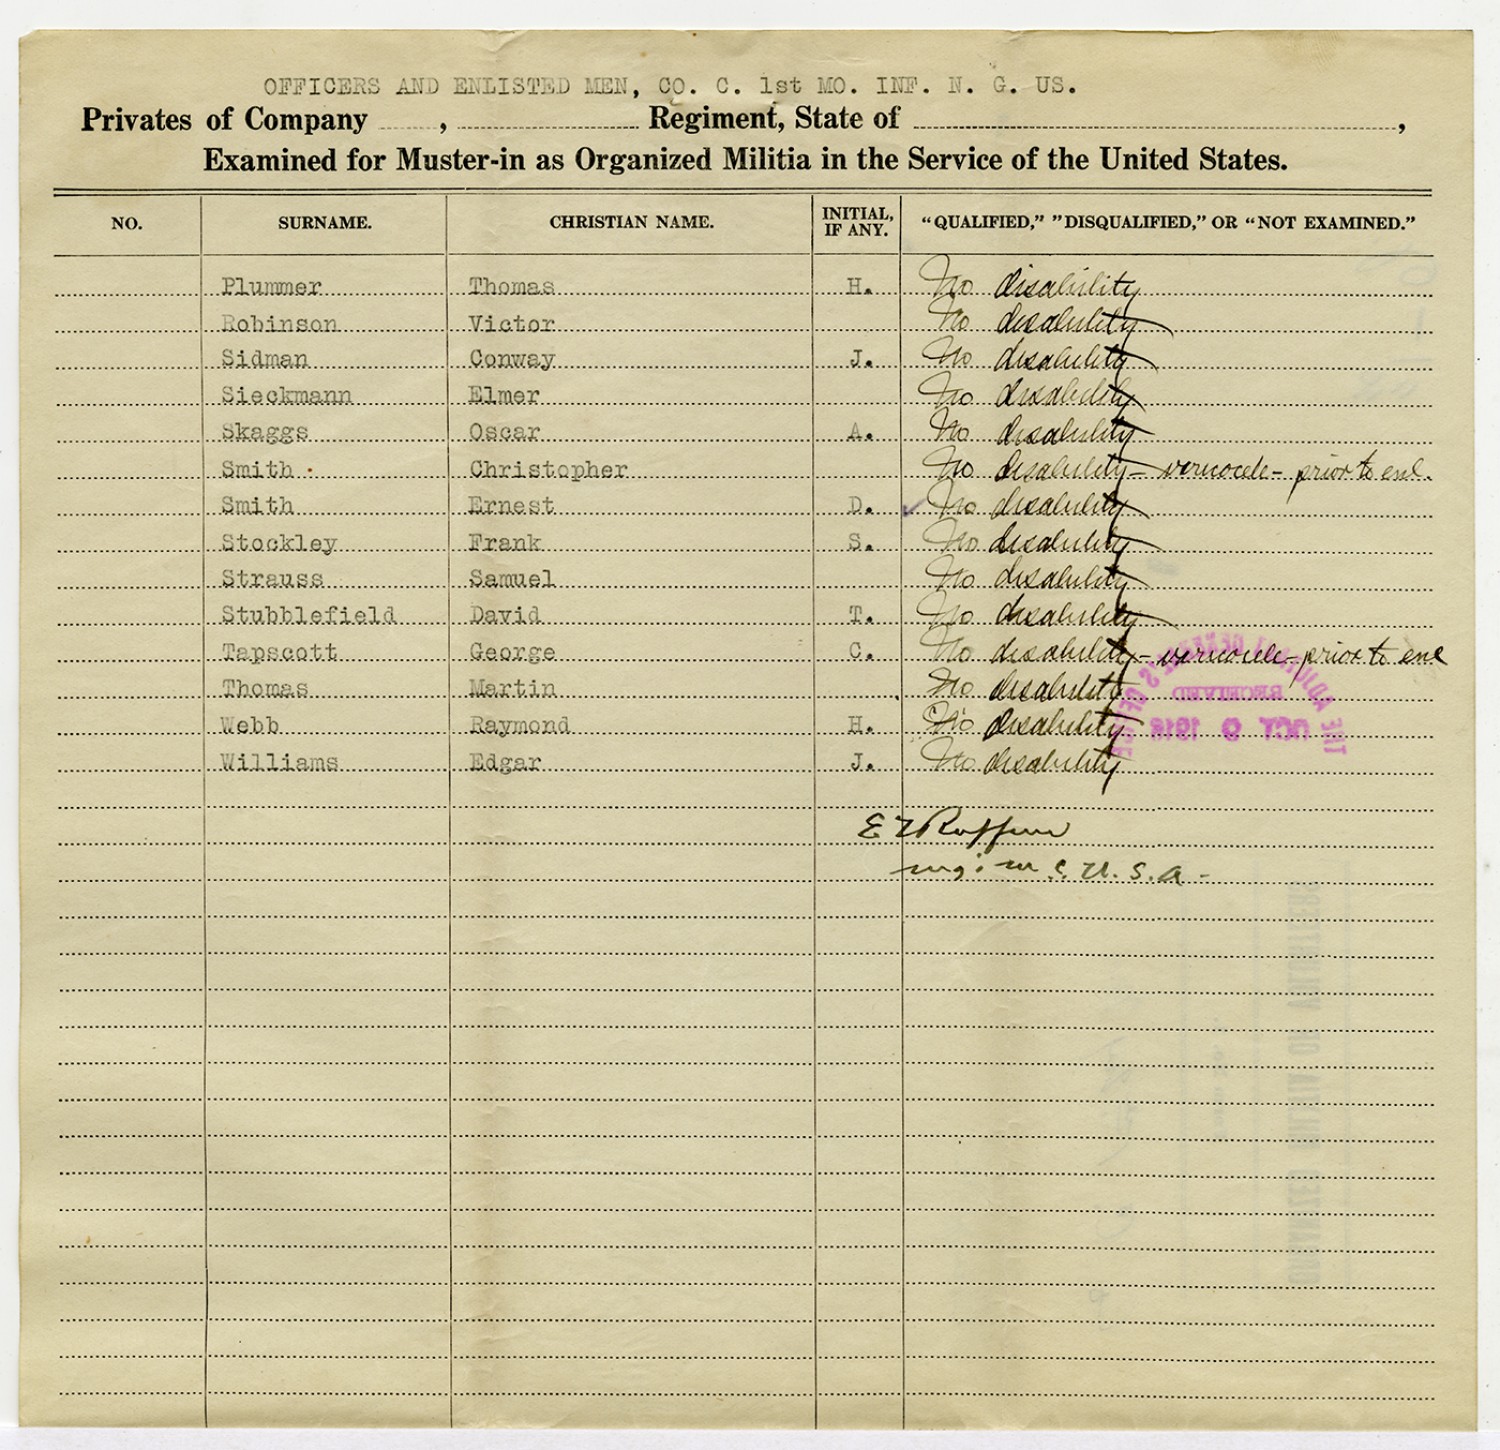 OFFICERS AND ENLISTED MEN, CO. C. 1st MO. INF. N. G. US.
Privates of Company , Regiment, State of ,
Examined for Muster-in as Organized Militia in the Service of the United States.
NO. SURNAME. CHRISTIAN NAME. INITIAL, IF ANY. “QUALIFIED,” ”DISQUALIFIED,” OR “NOT EXAMINED.”
Plummer Thomas H. No disability
Robinson Victor No disability
Sidman Conway J. No disability
Sieckmann Elmer No disability
Skaggs Oscar A. No disability
Smith Christopher No disability - varicocele - prior to enl.
Smith Ernest D. No disability
Stockley Frank S. No disability
Strauss Samuel No disability
Stubblefield David T. No disability
Tapscott George C. No disability - varicocele - prior to enl
Thomas Martin No disability
Webb Raymond H. No disability
Williams Edgar J. No disability
THE ADJUTANT GENERAL'S OFFICE
RECEIVED
OCT 9 1916
M C. U. S. A.
ORGANIZED MILITIA OR VOLUNTEERS